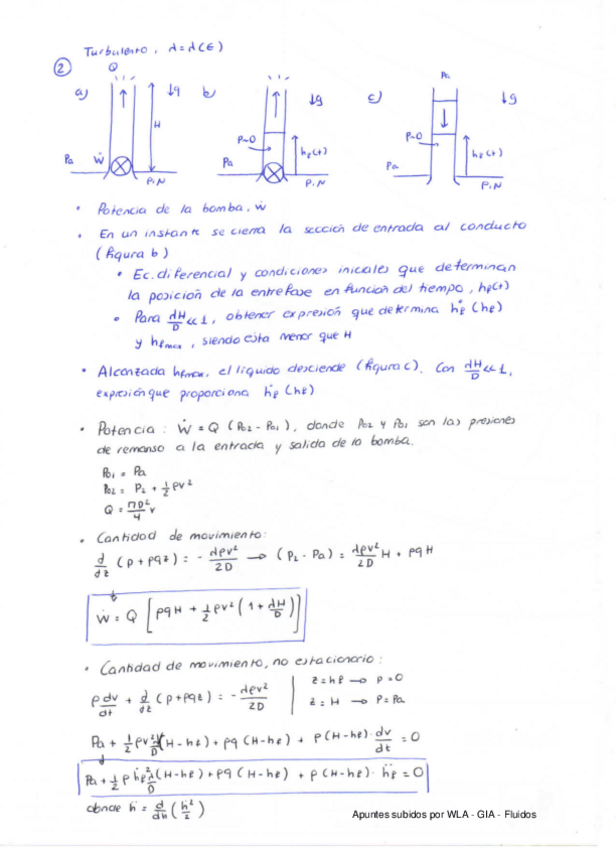 Turbulento, λ = λ(ε)
②
a) Q ↓g H Pa Ẇ P.N
b) ↓g P=0 hf(t) Pa P.N
c) Pa ↓g P=0 hf(t) Pa P.N
• Potencia de la bomba, Ẇ
• En un instante se cierra la sección de entrada al conducto
(figura b)
• Ec. diferencial y condiciones iniciales que determinan
la posición de la entrefase en función del tiempo, hf(t)
• Para λH/D << 1, obtener expresión que determina ḣf (hf)
y hfmax, siendo esta menor que H
• Alcanzada hfmax, el líquido desciende (figura c). Con λH/D << 1,
expresión que proporciona ḣf (hf)
• Potencia: Ẇ = Q (P02 - P01), donde P02 y P01 son las presiones
de remanso a la entrada y salida de la bomba.
P01 = Pa
P02 = P2 + 1/2 ρv²
Q = πD²/4 v
• Cantidad de movimiento:
d/dz (p + ρgz) = - λρv²/2D → (P2 - Pa) = λρv²/2D H + ρgH
Ẇ = Q [ρgH + 1/2 ρv² (1 + λH/D)]
• Cantidad de movimiento, no estacionario:
ρ dv/dt + d/dz (p + ρgz) = - λρv²/2D | z = hf → p = 0
z = H → p = Pa
Pa + 1/2 ρv² λ/D (H - hf) + ρg (H - hf) + ρ(H - hf) · dv/dt = 0
Pa + 1/2 ρ ḣf² λ/D (H - hf) + ρg (H - hf) + ρ(H - hf) · ḧf = 0
donde ḧ = d/dh (ḣ²/2)
Apuntes subidos por WLA - GIA - Fluidos